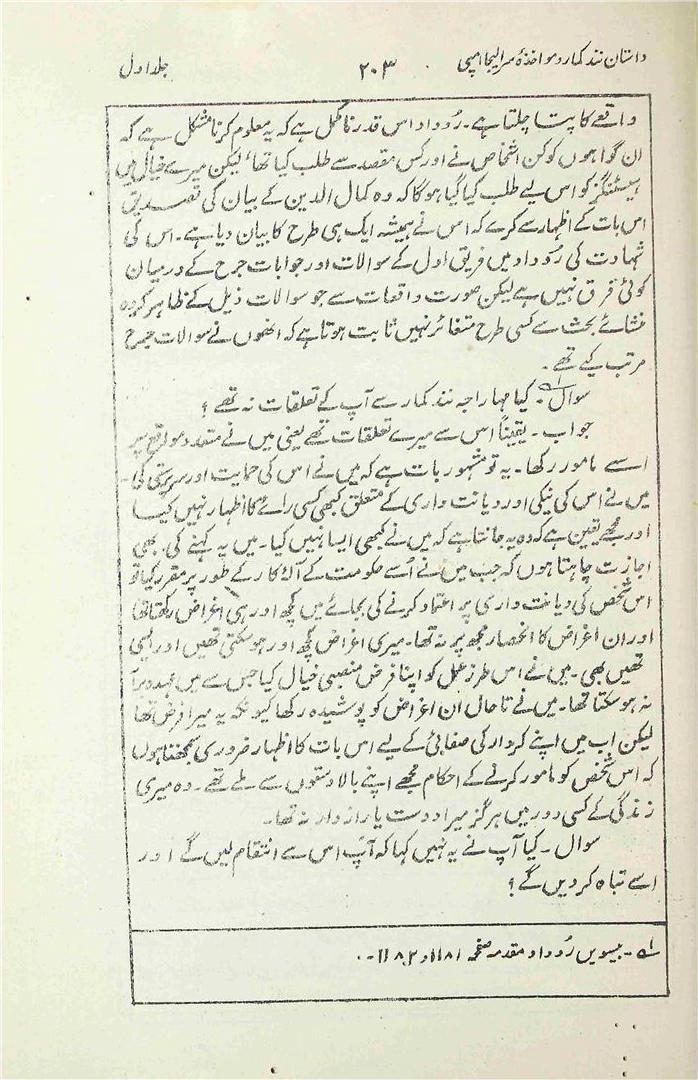 داستان نند کمار و مواخذۂ سر الیجا امپی ۲۰۳ جلد اول
واقعے کا پتا چلتا ہے۔ رُوداد اس قدر نامکمل ہے کہ یہ معلوم کرنا مشکل ہے کہ
ان گواہوں کو کن اشخاص نے اور کس مقصد سے طلب کیا تھا، لیکن میرے خیال میں
ہیسٹنگز کو اس لیے طلب کیا گیا ہوگا کہ وہ کمال الدین کے بیان کی تصدیق
اس بات کے اظہار سے کرے کہ اس نے ہمیشہ ایک ہی طرح کا بیان دیا ہے۔ اس کی
شہادت کی رُوداد میں فریق اول کے سوالات اور جوابات جرح کے درمیان
کوئی فرق نہیں ہے لیکن صورت واقعات سے جو سوالات ذیل کے ظاہر کردہ
منشائے بحث سے کسی طرح متغائر نہیں ثابت ہوتا ہے کہ انھوں نے سوالات جرح
مرتب کیے تھے۔
سوال۔ کیا مہاراجہ نند کمار سے آپ کے تعلقات نہ تھے؟
جواب۔ یقیناً اس سے میرے تعلقات تھے یعنی میں نے متعدد مواقع پر
اسے مامور رکھا۔ یہ تو مشہور بات ہے کہ میں نے اس کی حمایت اور سرپرستی کی۔
میں نے اس کی نیکی اور دیانت داری کے متعلق کبھی کسی رائے کا اظہار نہیں کیا
اور مجھے یقین ہے کہ وہ یہ جانتا ہے کہ میں نے کبھی ایسا نہیں کیا۔ میں یہ کہنے کی بھی
اجازت چاہتا ہوں کہ جب میں نے اُسے حکومت کے آلۂ کار کے طور پر مقرر کیا تو
اس شخص کی دیانت داری پر اعتماد کرنے کی بجائے میں کچھ اور ہی اغراض رکھتا تھا
اور ان اغراض کا انحصار مجھ پر نہ تھا۔ میری اغراض کچھ اور ہو سکتی تھیں اور ایسی
تھیں بھی۔ میں نے اس طرز عمل کو اپنا فرض منصبی خیال کیا جس سے میں عہدہ برآ
نہ ہو سکتا تھا۔ میں نے تا حال ان اغراض کو پوشیدہ رکھا کیونکہ یہ میرا فرض تھا
لیکن اب میں اپنے کردار کی صفائی کے لیے اس بات کا اظہار ضروری سمجھتا ہوں
کہ اس شخص کو مامور کرنے کے احکام مجھے اپنے بالا دستوں سے ملے تھے۔ وہ میری
زندگی کے کسی دور میں ہرگز میرا دوست یا رازدار نہ تھا۔
سوال۔ کیا آپ نے یہ نہیں کہا کہ آپ اس سے انتقام لیں گے اور
اسے تباہ کر دیں گے؟
۱؎۔ بیسویں رُوداد مقدمہ صفحہ ۱۱۸۱ و ۱۱۸۲۔